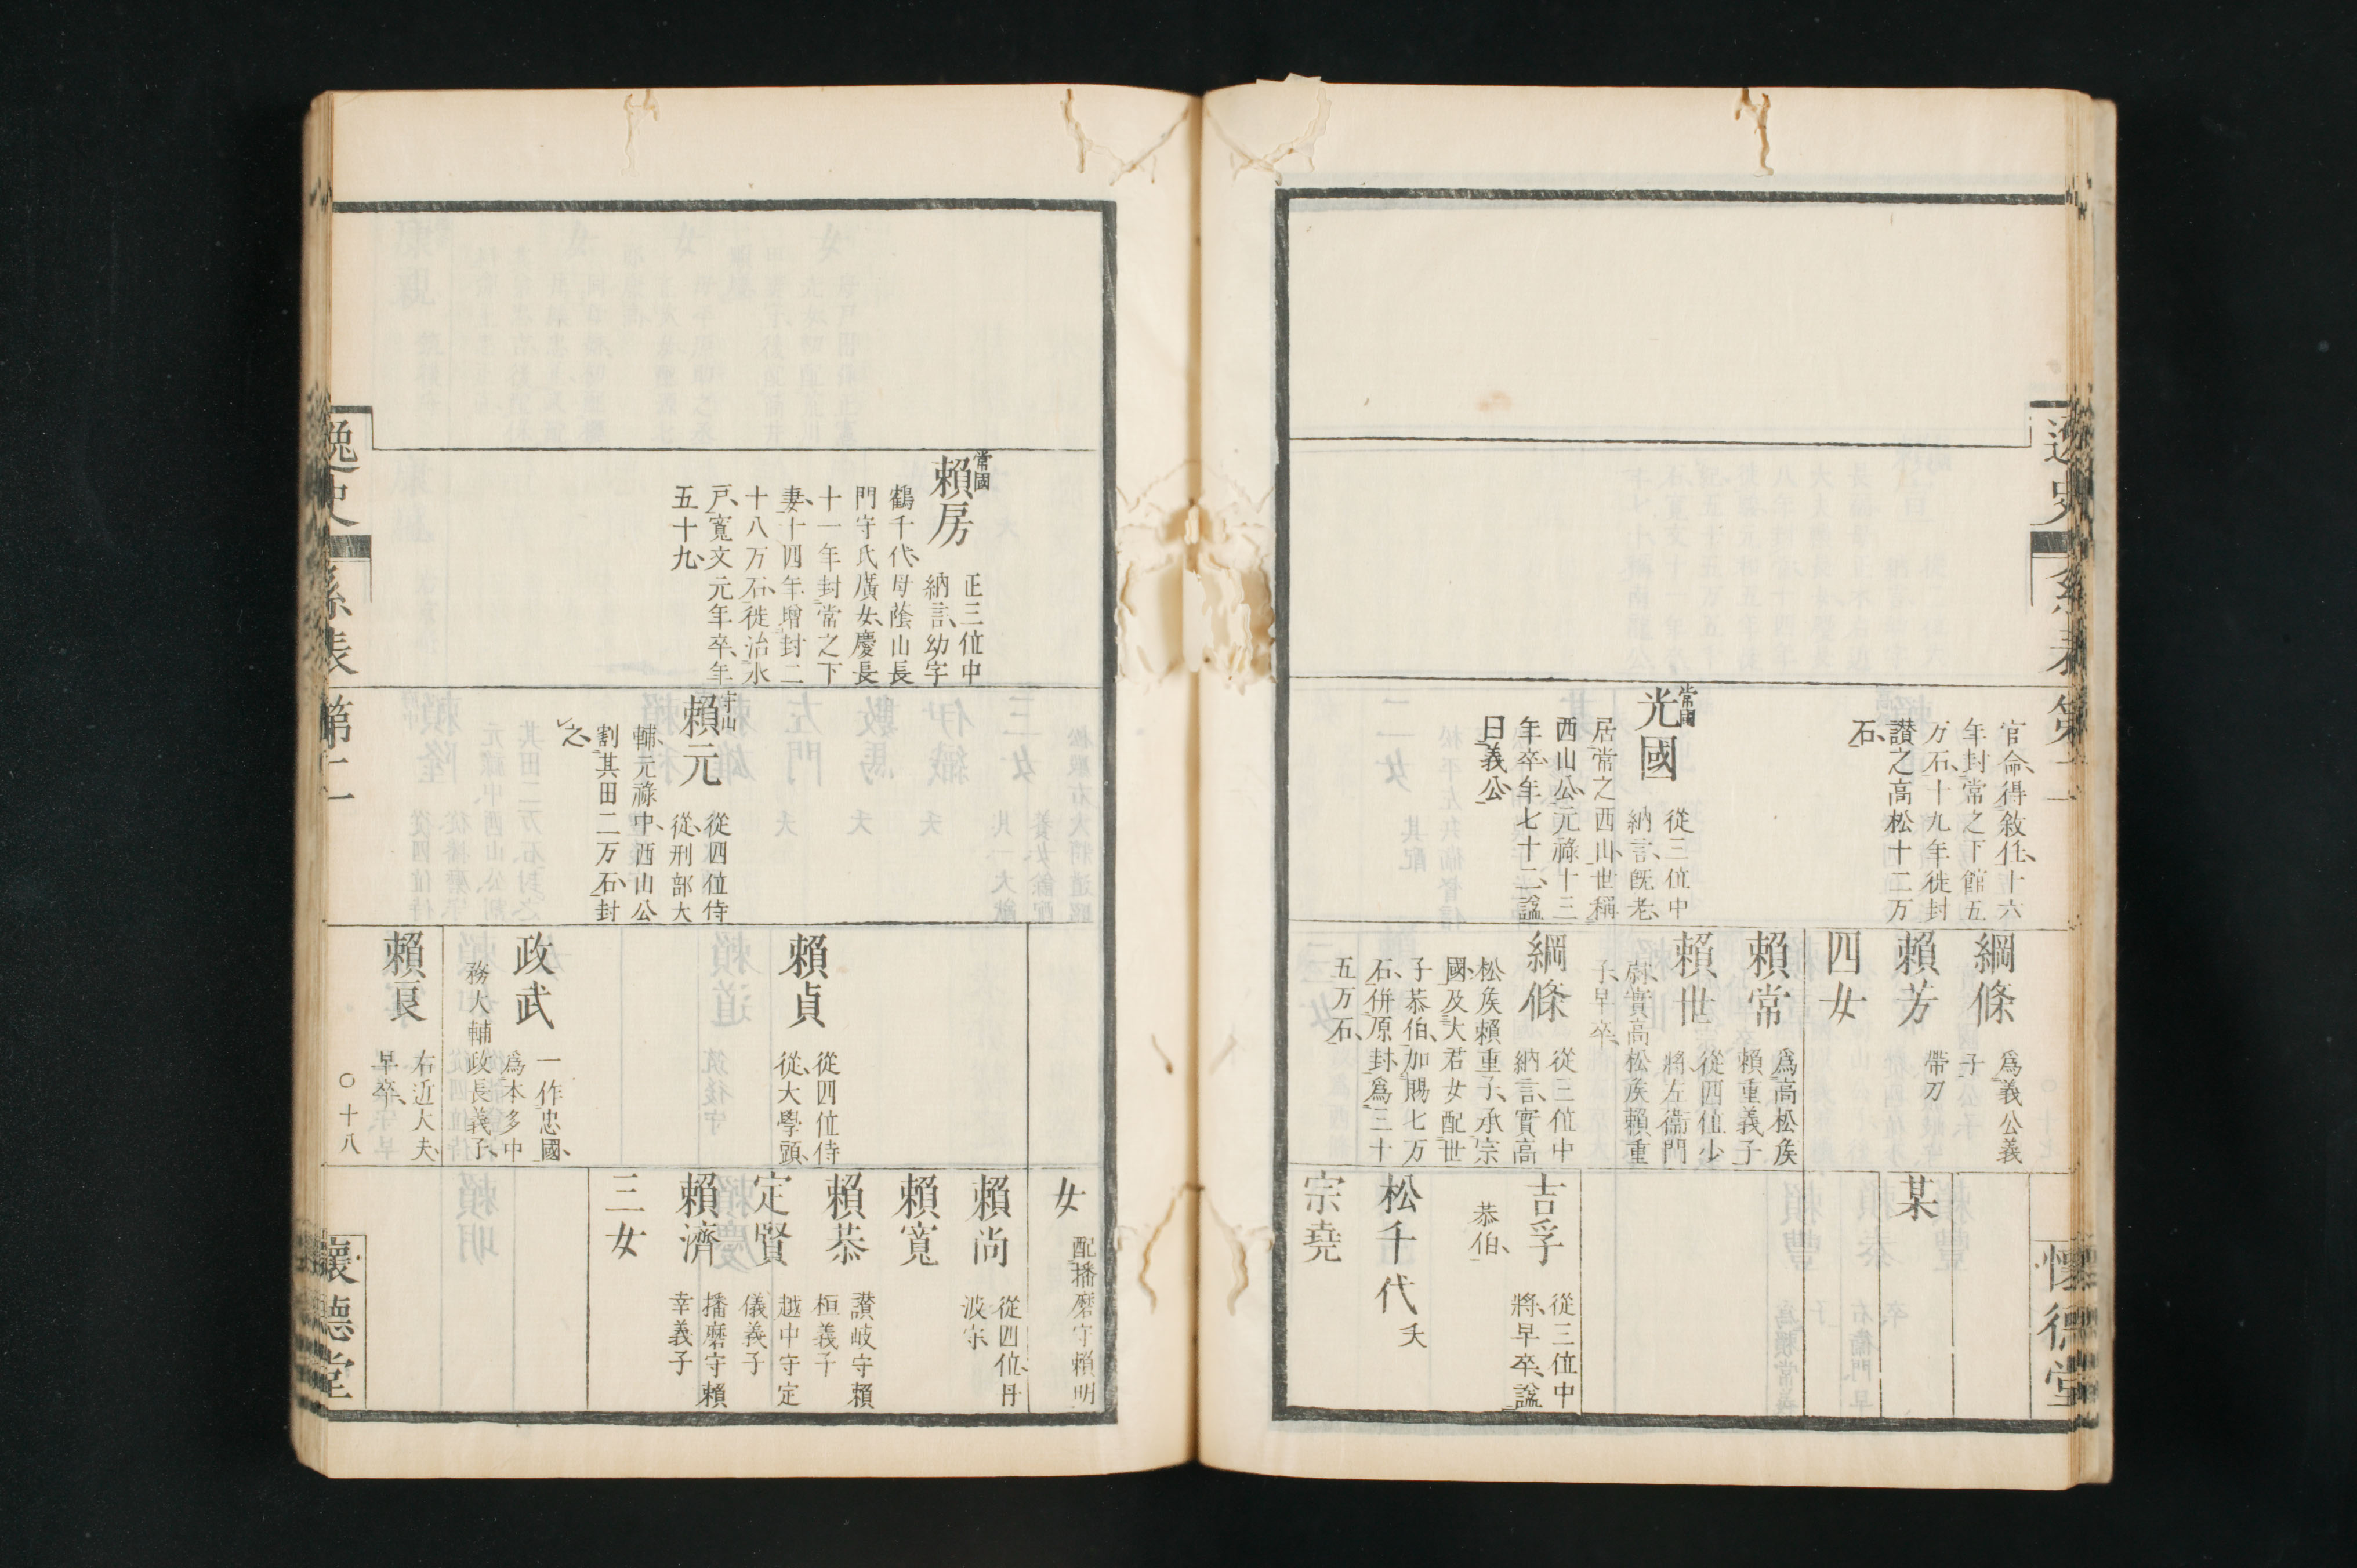 逸史
系表
第十一
懷德堂
官命得敘任十六
年封常之下館五
万石十九年徙封
讃之高松十二万
石
常國
光國
從三位中
納言既老
居常之西山世稱
西山公元祿十三
年卒年七十二謚
曰義公
綱條
爲義公義
子
賴芳
帶刀
四女
賴常
爲高松矦
賴重義子
賴世
從四位少
將左衞門
尉實高松矦賴重
子早卒
綱條
從三位中
納言實高
松矦賴重子承宗
國及大君女配世
子恭伯加賜七万
石併原封爲三十
五万石
某
吉孚
從三位中
將早卒謚
恭伯
松千代
夭
宗堯
常國
賴房
正三位中
納言幼字
鶴千代母蔭山長
門守氏廣女慶長
十一年封常之下
妻十四年增封二
十八万石徙治水
戸寛文元年卒年
五十九
守山
賴元
從四位侍
從刑部大
輔元祿中西山公
割其田二万石封
之
賴貞
從四位侍
從大學頭
政武
一作忠國
爲本多中
務大輔政長義子
賴㫐
右近大夫
早卒
女
配播磨守賴明
賴尚
從四位丹
波守
賴寬
賴恭
讃岐守賴
桓義子
定賢
越中守定
儀義子
賴濟
播磨守賴
幸義子
三女
逸史
系表
第十一
〇十八
懷德堂